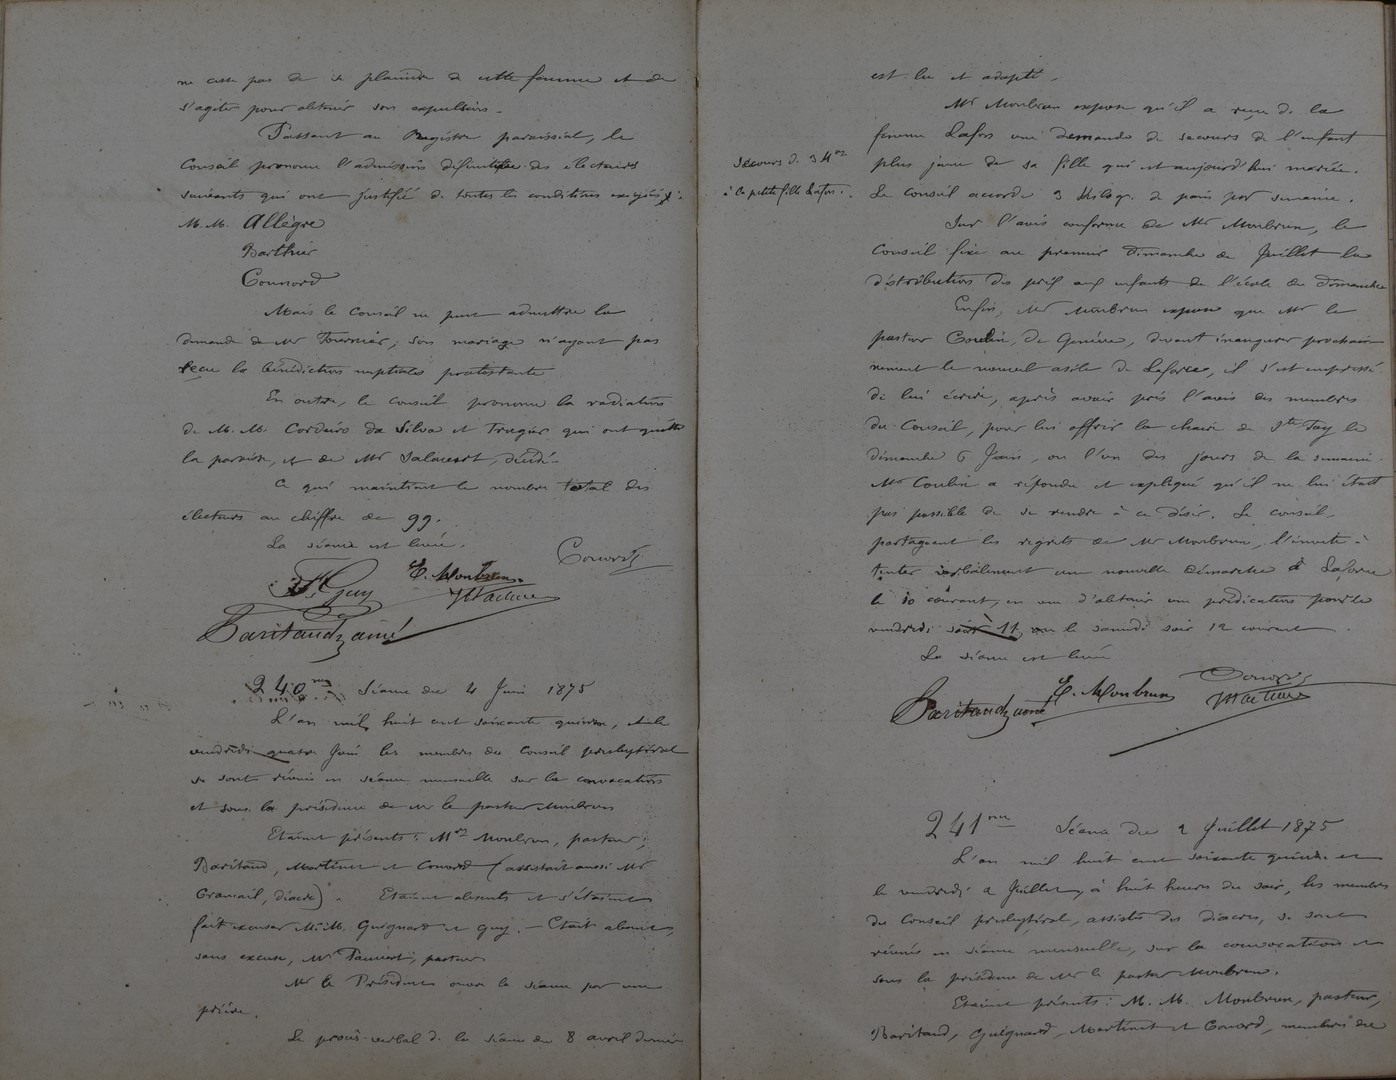 ne cesse pas de se plaindre de cette femme et de
s'agiter pour obtenir son expulsion.
Passant au Registre paroissial, le
Conseil prononce l'admission définitive des électeurs
suivants qui ont justifié de toutes les conditions exigées :
M.M. Allègre
Barthier
Conord
Mais le Conseil ne peut admettre la
demande de Mr Fournier, son mariage n'ayant pas
reçu la bénédiction nuptiale protestante
En outre, le conseil prononce la radiation
de M.M. Cordeiro da Silva et Trugier qui ont quitté
la paroisse, et de Mr décédé.
Ce qui maintient le nombre total des
électeurs au chiffre de 99.
La séance est levée.
Conord
Guy E. Monbrun Martinet
Baritaud aîné
240me Séance du 4 Juin 1875
L'an mil huit cent soixante quinze, et le
vendredi quatre Juin les membres du Conseil presbytéral
se sont réunis en séance mensuelle sur la convocation
et sous la présidence de Mr le pasteur Monbrun
Etaient présents : Mrs Monbrun, pasteur ;
Baritaud, Martinet et Conord (assistait aussi Mr
diacre). Etaient absents et s'étaient
fait excuser M.M. Guignard et Guy. — Etait absent,
sans excuse, Mr pasteur.
Mr le Président ouvre la séance par une
prière.
Le procès-verbal de la séance du 8 avril dernier
est lu et adopté.
Mr Monbrun expose qu'il a reçu de la
femme Lafon une demande de secours de l'enfant
plus jeune de sa fille qui est aujourd'hui mariée.
Le Conseil accorde 3 Kilogr. de pain par semaine.
secours de 3 Kos
à la petite fille Lafon.
Sur l'avis conforme de Mr Monbrun, le
Conseil fixe au premier dimanche de Juillet la
distribution des prix aux enfants de l'école du dimanche
Enfin, Mr Monbrun expose que Mr le
pasteur Coulin, de Genève, devant inaugurer prochai-
nement le nouvel asile de Laforce, il s'est empressé
de lui écrire, après avoir pris l'avis des membres
du Conseil, pour lui offrir la chaire de Ste Foy le
dimanche 6 Juin, ou l'un des jours de la semaine.
Mr Coulin a répondu et expliqué qu'il ne lui était
pas possible de se rendre à ce désir. Le conseil,
partageant les regrets de Mr Monbrun, l'invite à
tenter verbalement une nouvelle démarche à Laforce
le 10 courant, en vue d'obtenir une prédication pour le
vendredi soir 11, ou le samedi soir 12 courant.
La séance est levée
Conord
Baritaud aîné E. Monbrun Martinet
241me Séance du 2 Juillet 1875
L'an mil huit cent soixante quinze et
le vendredi 2 Juillet, à huit heures du soir, les membres
du Conseil presbytéral, assistés des diacres, se sont
réunis en séance mensuelle, sur la convocation et
sous la présidence de Mr le pasteur Monbrun.
Etaient présents : M.M. Monbrun, pasteur,
Baritaud, Guignard, Martinet et Conord, membres du